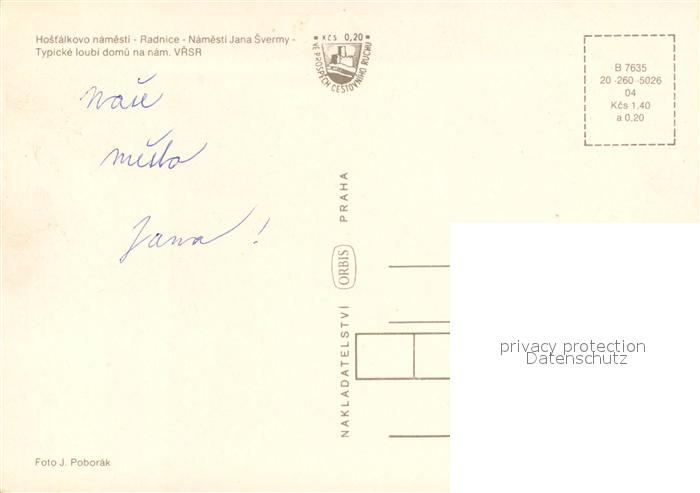 Hošťálkovo náměstí - Radnice - Náměstí Jana Švermy -
Typické loubí domů na nám. VŘSR
KČS 0,20
VE PROSPĚCH CESTOVNÍHO RUCHU
B 7635
20-260-5026
04
Kčs 1,40
a 0,20
Naše
město
Jana!
NAKLADATELSTVÍ ORBIS PRAHA
privacy protection
Datenschutz
Foto J. Poborák